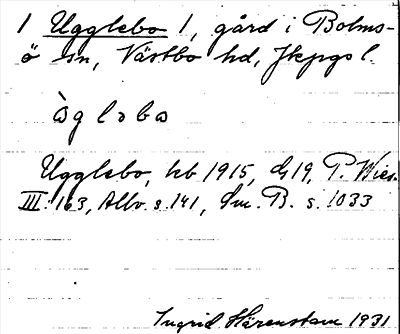 1 Ugglebo 1, gård i Bolms-
ö sn, Västbo hd, Jkpgs l.
ùgləbo
Ugglebo, hb 1915, G19, P. Wies.
III: 163, Allv. s. 141, Sm. B. s. 1033
Ingrid Härenstam 1931